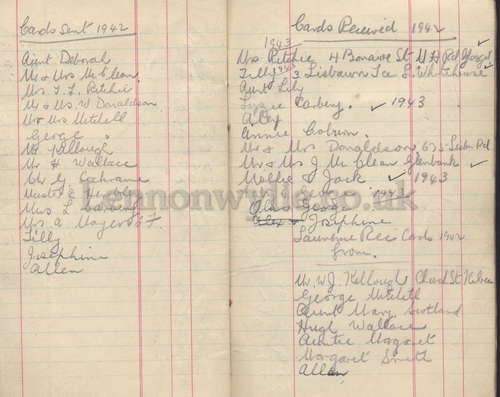 Cards Sent 1942
Aunt Deborah
Mr & Mrs McClean
Mrs T. L. Ritchie
Mr & Mrs W Donaldson
Mr & Mrs Mitchell
George "
Mr Kellough
Mr H Wallace
Mr G Cochrane
Mrs L
Mrs A Mayes
Tilly
Josephine
Allen
Cards Received 1942
1943
Mrs Ritchie 4 Bonaroe St
Tilly 1943 3 Lisbawn Tce Whitehouse
Aunt Lily
Lizzie Carberry. ✓ 1943
A Dex
Annie Coburn.
Mr & Mrs Donaldson 675 Lisbn Rd
Mr & Mrs J McClean Glenbank ✓
Mollie & Jack ✓ 1943
George
Alex Josephine
Laurence Rec Cards 1942
from.
Mr W. J. Kellough Church St
George Mitchell
Aunt Mary, Scotland
Hugh Wallace
Auntie Margaret
Margaret Smith
Allan
Lennonwylie.co.uk